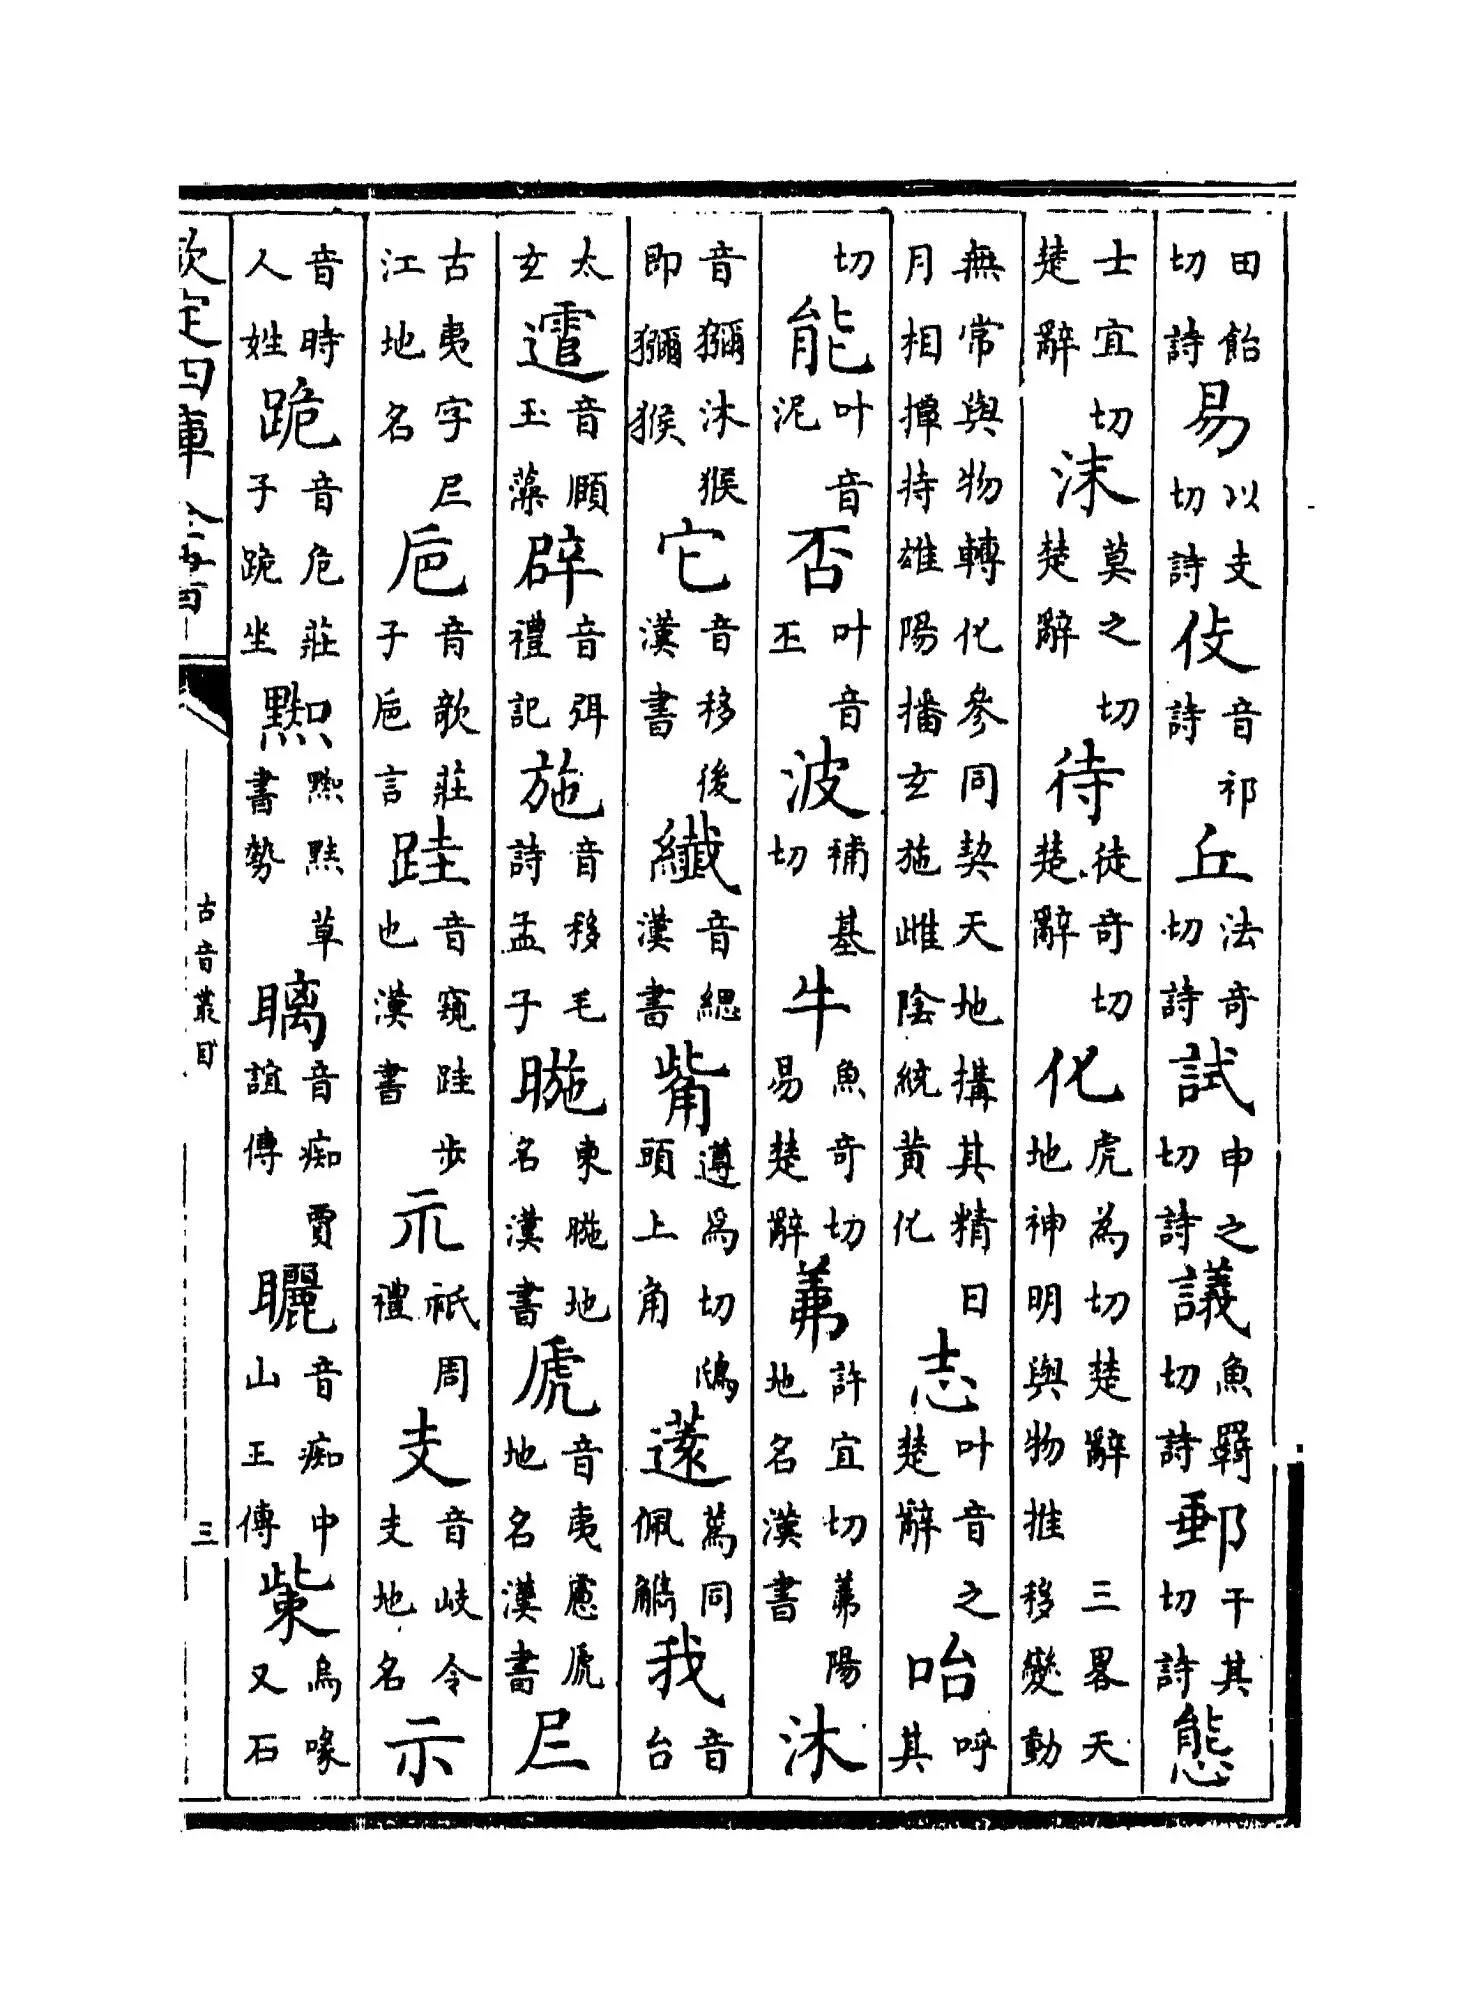 田飴切詩易以支切詩伎音祁詩丘法奇切詩試申之切詩議魚羈切詩郵干其切詩態
士宜切楚辭沬莫之切楚辭待徒奇切楚辭化虎為切楚辭三畧天地神明與物推移變動
無常與物轉化參同契天地搆其精日月相撢持雄陽播玄施雌陰統黃化志叶音之楚辭咍呼其
切能叶音泥否叶音丕波補基切牛魚奇切易楚辭許宜切陽地名漢書沐
音獼沐猴即獼猴它音移後漢書纎音緦漢書觜遵為切鴟頭上角薳蔿同佩觿我音台
太玄音頤玉藻辟音弭禮記施音移毛詩孟子暆東暆地名漢書虒音夷慮虒地名漢書𡰥
古夷字𡰥江地名巵音欹莊子巵言跬音窺跬步也漢書示祇周禮支音岐令支地名示
音時人姓跪音危莊子跪坐草書勢瞝音痴賈誼傳矖音痴中山王傳烏喙又石
欽定四庫全書
古音叢目
三